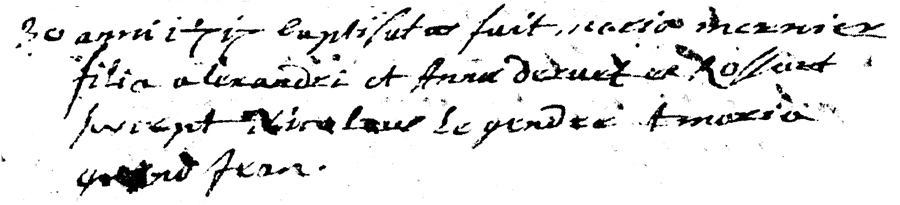 30 anni 1717 baptisata fuit maria mernier
filia alexandri et Anna de ex Rossart
suscept Nicolaus le gendre et maria
grand Jean.